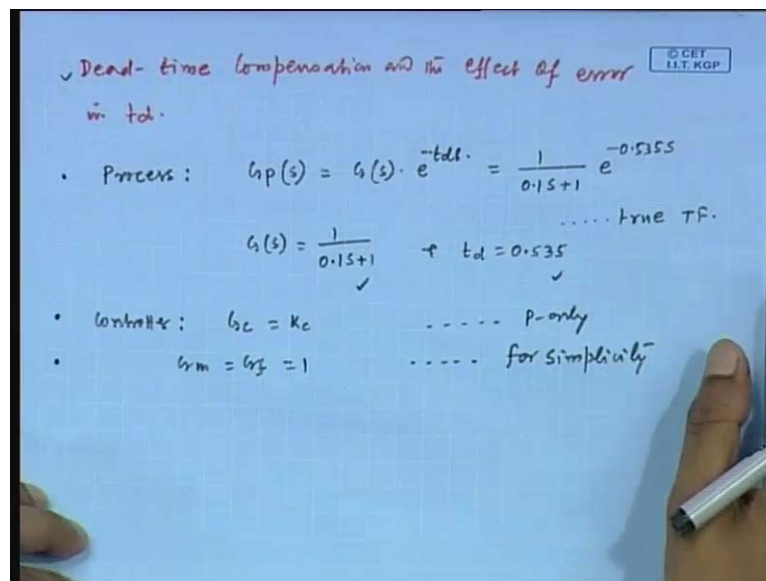 ✓ Dead-time Compensation and the effect of error
© CET
I.I.T. KGP
in td.
• Process: Gp(s) = G(s)· e^{-tds}. = \frac{1}{0.1S+1} e^{-0.535S}
..... true TF.
G(s) = \frac{1}{0.1S+1} & td = 0.535
✓ ✓
• Controller: Gc = Kc ..... P-only
• Gm = Gf = 1 ..... for simplicity